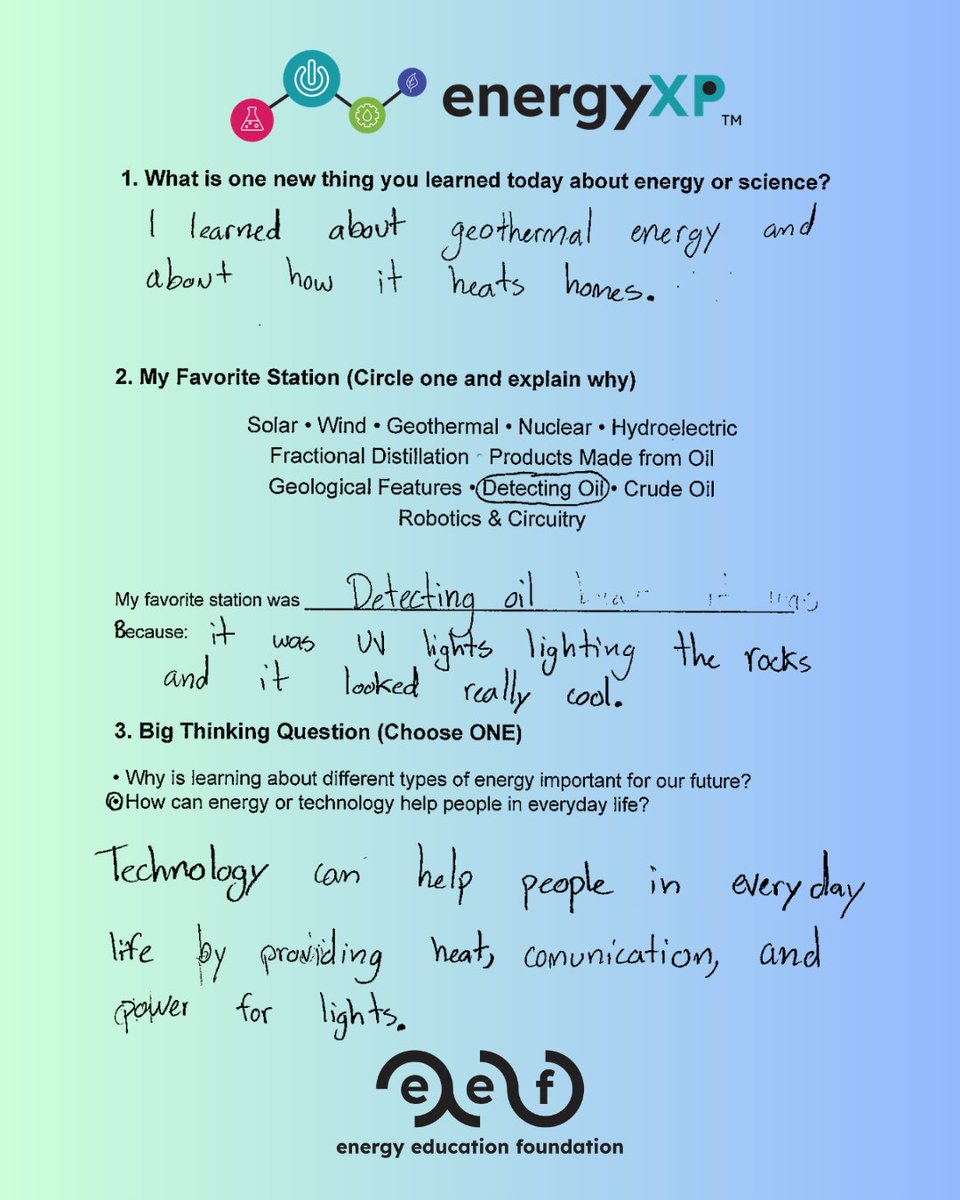 energyXP™
1. What is one new thing you learned today about energy or science?
I learned about geothermal energy and
about how it heats homes.
2. My Favorite Station (Circle one and explain why)
Solar • Wind • Geothermal • Nuclear • Hydroelectric
Fractional Distillation • Products Made from Oil
Geological Features • Detecting Oil • Crude Oil
Robotics & Circuitry
My favorite station was Detecting oil it was
Because: it was UV lights lighting the rocks
and it looked really cool.
3. Big Thinking Question (Choose ONE)
• Why is learning about different types of energy important for our future?
How can energy or technology help people in everyday life?
Technology can help people in every day
life by providing heat, comunication, and
power for lights.
eef
energy education foundation